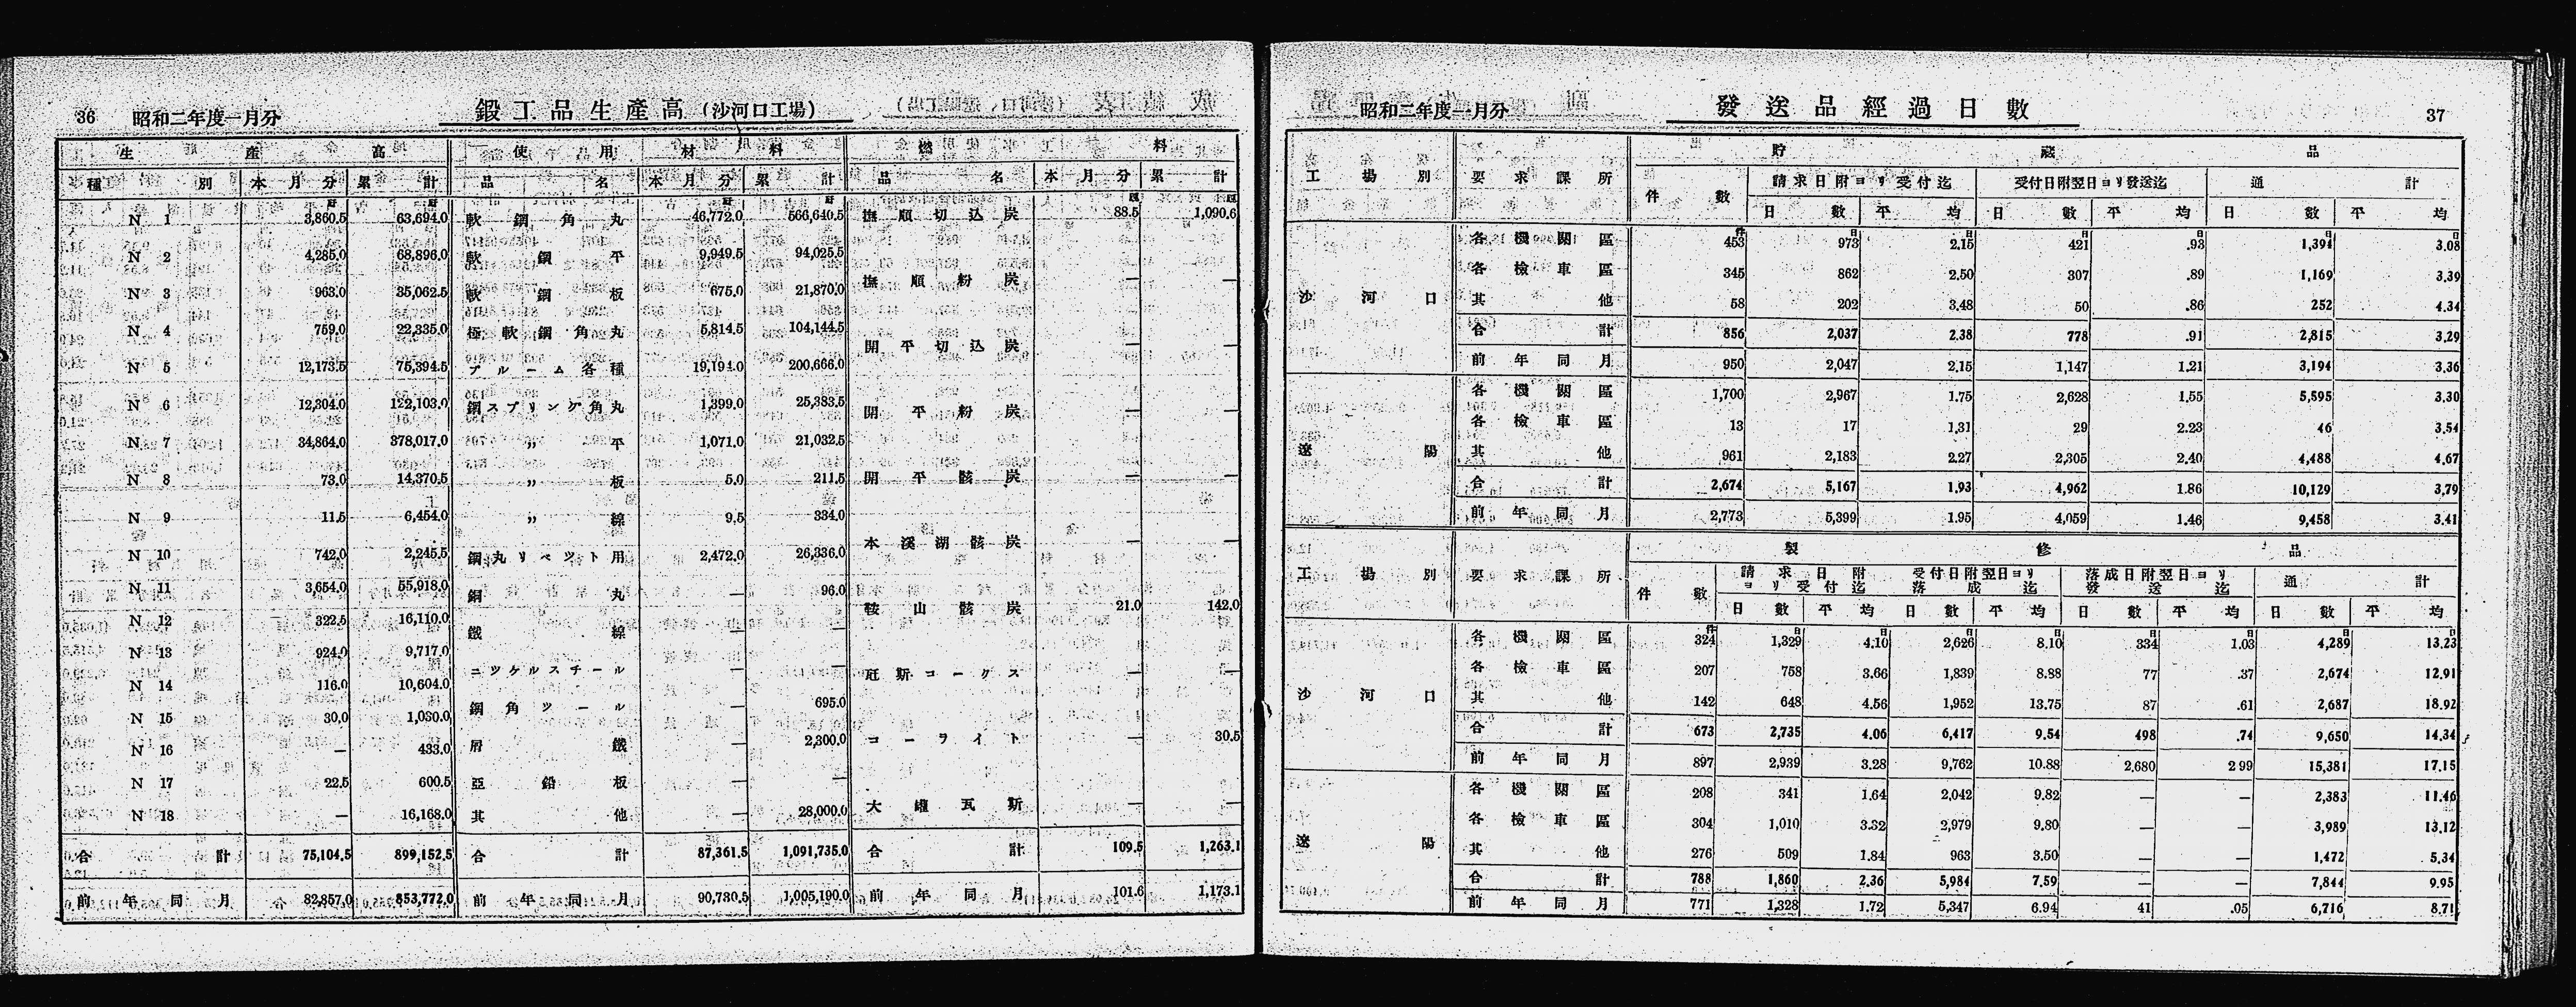 36 昭和二年度一月分 鍛工品生產高(沙河口工場)
生產高 使用材料 燃料
種別 本月分 累計 品名 本月分 累計 品名 本月分 累計
瓲 瓲
N 1 3,860.5 63,694.0 軟鋼角丸 46,772.0 566,640.5 撫順切込炭 88.5 1,090.6
N 2 4,285.0 68,896.0 軟鋼平 9,949.5 94,025.5
撫順粉炭 — —
N 3 963.0 35,062.5 軟鋼板 675.0 21,870.0
N 4 759.0 22,335.0 極軟鋼角丸 5,814.5 104,144.5
開平切込炭 — —
N 5 12,173.5 75,394.5 ブルーム各種 19,194.0 200,666.0
N 6 12,304.0 122,103.0 鋼スプリング角丸 1,399.0 25,383.5
開平粉炭 — —
N 7 34,864.0 378,017.0 〃 平 1,071.0 21,032.5
N 8 73.0 14,370.5 〃 板 5.0 211.5 開平骸炭 — —
N 9 11.5 6,454.0 〃 線 9.5 334.0
本溪湖骸炭 — —
N 10 742.0 2,245.5 鋼丸リベツト用 2,472.0 26,336.0
N 11 3,654.0 55,918.0 銅丸 — 96.0
鞍山骸炭 21.0 142.0
N 12 322.5 16,110.0 鐵線 — —
N 13 924.0 9,717.0 ニツケルスチール — —
瓦斯コークス — —
N 14 116.0 10,604.0 鋼角ツール — 695.0
N 15 30.0 1,030.0
N 16 — 433.0 屑鐵 — 2,300.0 コーライト — 30.5
N 17 22.5 600.5 亞鉛板 — —
大罐瓦斯 — —
N 18 — 16,168.0 其他 — 28,000.0
合計 75,104.5 899,152.5 合計 87,361.5 1,091,735.0 合計 109.5 1,263.1
前年同月 82,857.0 853,772.0 前年同月 90,730.5 1,005,190.0 前年同月 101.6 1,173.1
昭和二年度一月分 發送品經過日數 37
工場別 要求課所 貯藏品
件數 請求日附ヨリ受付迄 受付日附翌日ヨリ發送迄 通計
日數 平均 日數 平均 日數 平均
件 日 日 日 日 日 日
沙河口 各機關區 453 973 2.15 421 .93 1,394 3.08
各檢車區 345 862 2.50 307 .89 1,169 3.39
其他 58 202 3.48 50 .86 252 4.34
合計 856 2,037 2.38 778 .91 2,815 3.29
前年同月 950 2,047 2.15 1,147 1.21 3,194 3.36
遼陽 各機關區 1,700 2,967 1.75 2,628 1.55 5,595 3.30
各檢車區 13 17 1.31 29 2.23 46 3.54
其他 961 2,183 2.27 2,305 2.40 4,488 4.67
合計 2,674 5,167 1.93 4,962 1.86 10,129 3.79
前年同月 2,773 5,399 1.95 4,059 1.46 9,458 3.41
工場別 要求課所 製修品
件數 請求日附ヨリ受付迄 受付日附翌日ヨリ落成迄 落成日附翌日ヨリ發送迄 通計
日數 平均 日數 平均 日數 平均 日數 平均
件 日 日 日 日 日 日 日 日
沙河口 各機關區 324 1,329 4.10 2,626 8.10 334 1.03 4,289 13.23
各檢車區 207 758 3.66 1,839 8.88 77 .37 2,674 12.91
其他 142 648 4.56 1,952 13.75 87 .61 2,687 18.92
合計 673 2,735 4.06 6,417 9.54 498 .74 9,650 14.34
前年同月 897 2,939 3.28 9,762 10.88 2,680 2 99 15,381 17.15
遼陽 各機關區 208 341 1.64 2,042 9.82 — — 2,383 11.46
各檢車區 304 1,010 3.32 2,979 9.80 — — 3,989 13.12
其他 276 509 1.84 963 3.50 — — 1,472 5.34
合計 788 1,860 2.36 5,984 7.59 — — 7,844 9.95
前年同月 771 1,328 1.72 5,347 6.94 41 .05 6,716 8.71